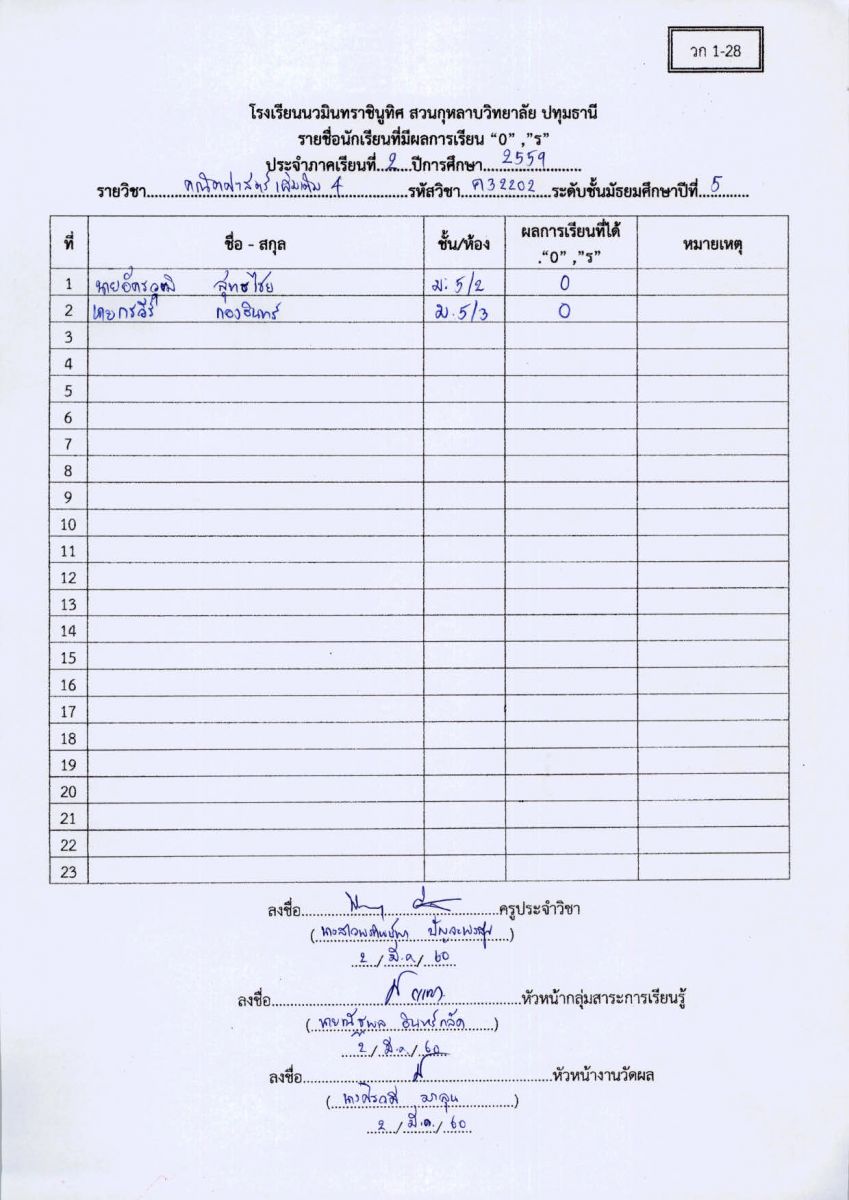 วก 1-28
โรงเรียนนวมินทราชินูทิศ สวนกุหลาบวิทยาลัย ปทุมธานี
รายชื่อนักเรียนที่มีผลการเรียน “0” ,”ร”
ประจำภาคเรียนที่ 2 ปีการศึกษา 2559
รายวิชา คณิตศาสตร์เพิ่มเติม 4 รหัสวิชา ค32202 ระดับชั้นมัธยมศึกษาปีที่ 5
ที่ ชื่อ - สกุล ชั้น/ห้อง ผลการเรียนที่ได้ หมายเหตุ
.“0” ,”ร”
1 นายอัครวุฒิ สุทธไชย ม. 5/2 0
2 นายกรวีร์ กองอินทร์ ม. 5/3 0
3
4
5
6
7
8
9
10
11
12
13
14
15
16
17
18
19
20
21
22
23
ลงชื่อ ครูประจำวิชา
( นางสาว )
2 / มี.ค. / 60
ลงชื่อ หัวหน้ากลุ่มสาระการเรียนรู้
( นายณัฐพล อินทร์กลัด )
2 / มี.ค. / 60
ลงชื่อ หัวหน้างานวัดผล
( มาลุน )
2 / มี.ค. / 60